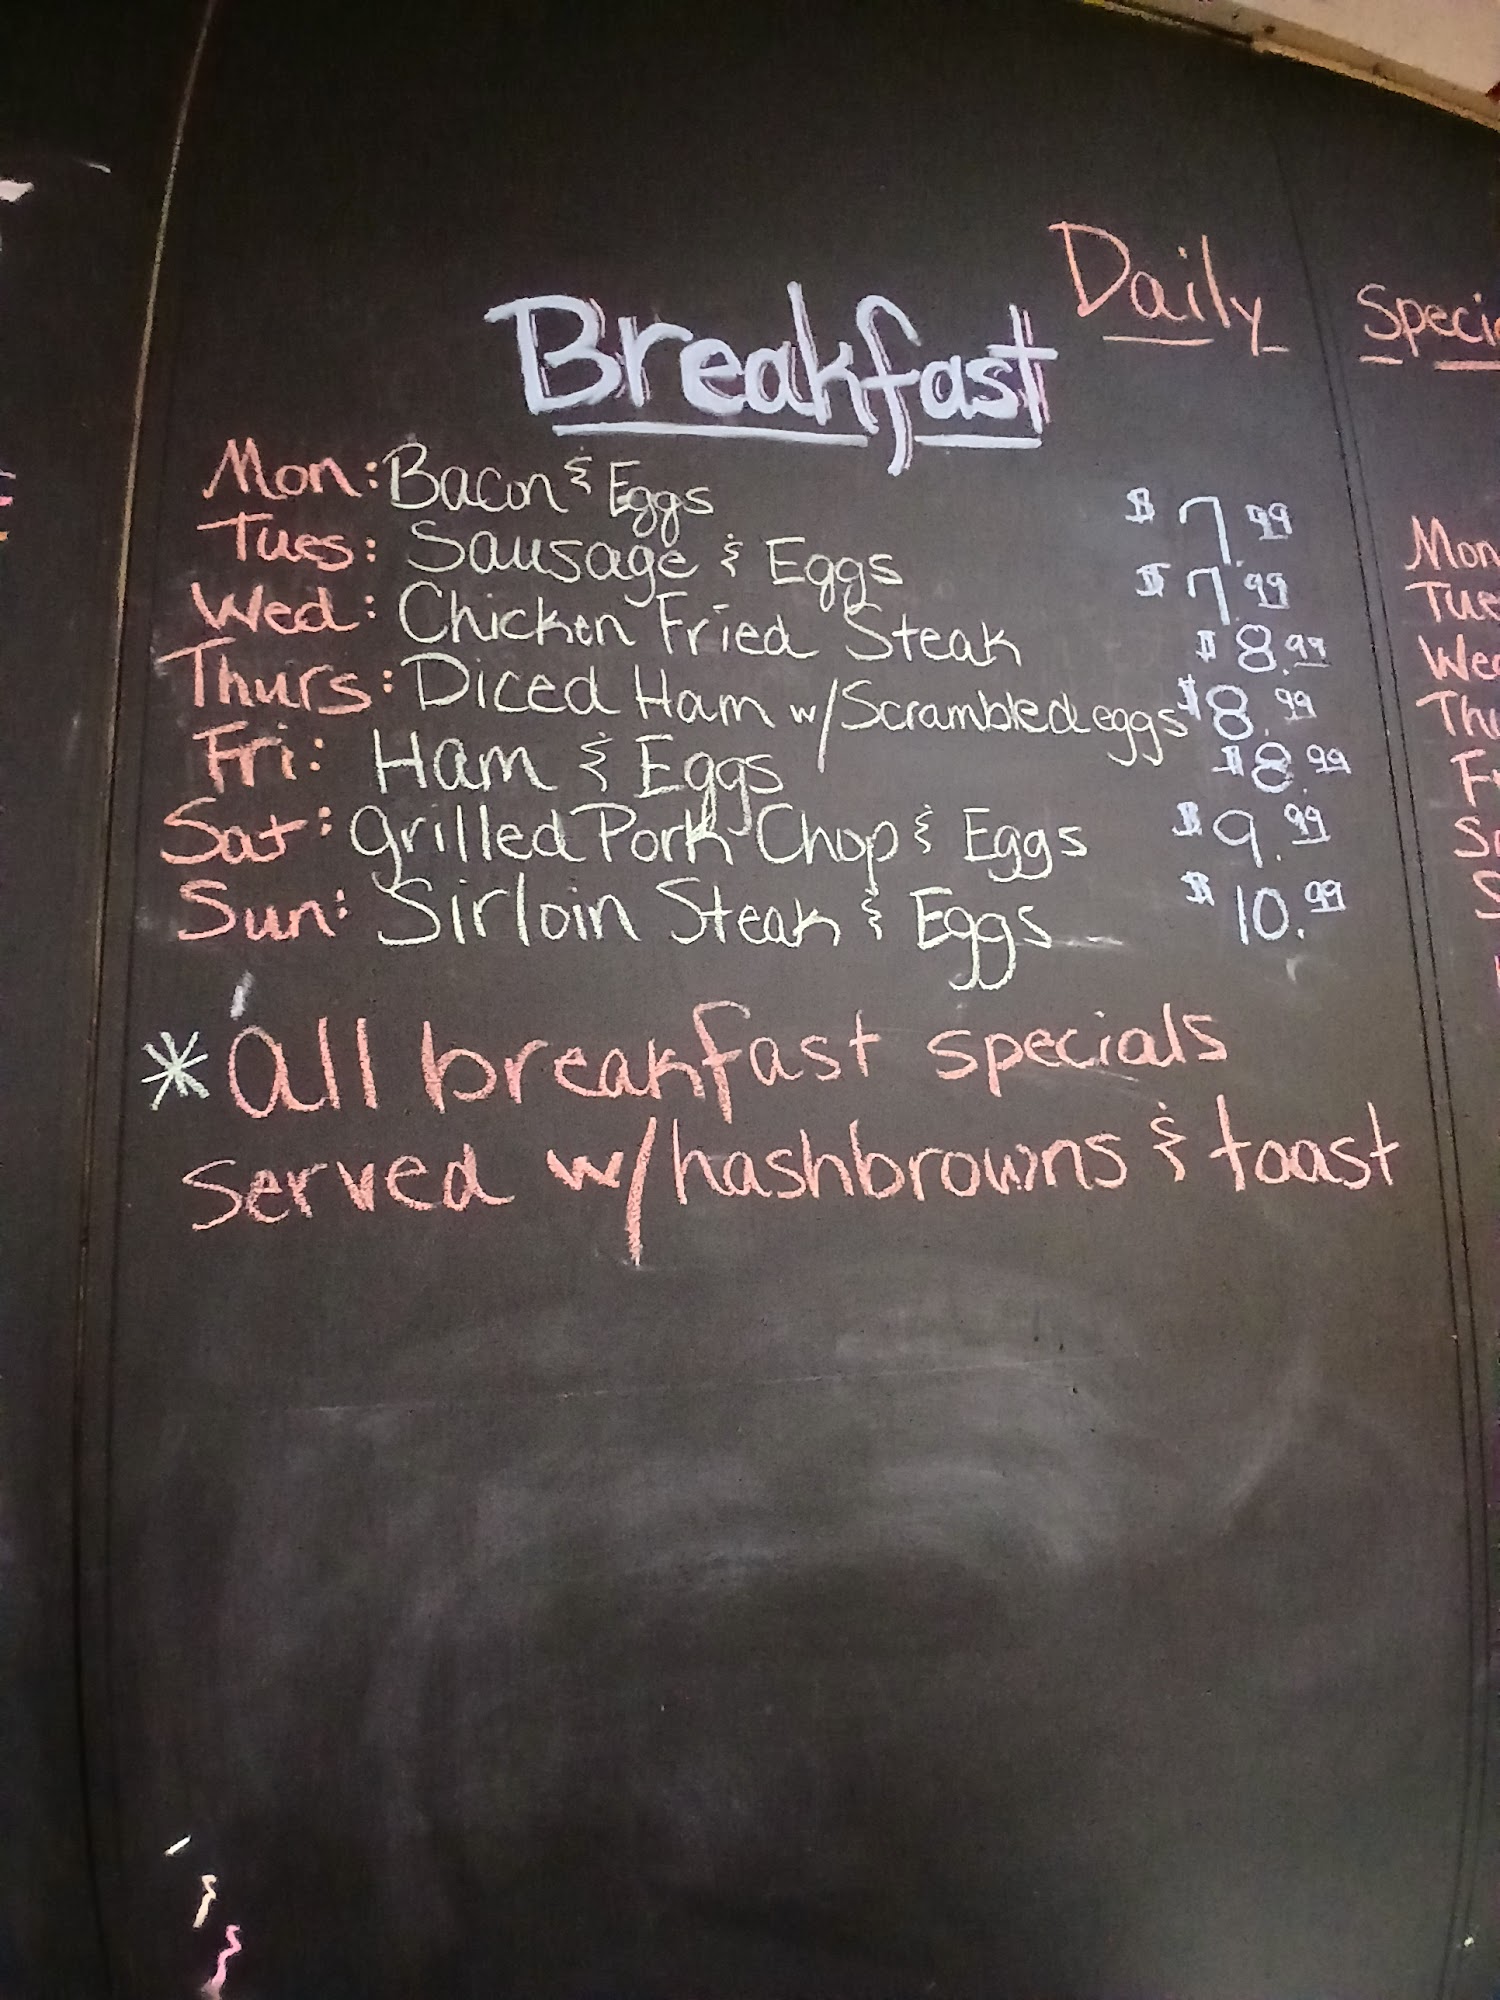 Daily
Breakfast
Mon: Bacon & Eggs $7.99
Tues: Sausage & Eggs $7.99
Wed: Chicken Fried Steak $8.99
Thurs: Diced Ham w/Scrambled eggs $8.99
Fri: Ham & Eggs $8.99
Sat: Grilled Pork Chop & Eggs $9.99
Sun: Sirloin Steak & Eggs $10.99
*All breakfast specials
served w/hashbrowns & toast
Specia
Mon
Tue
Wed
Thu
F
Sa
S